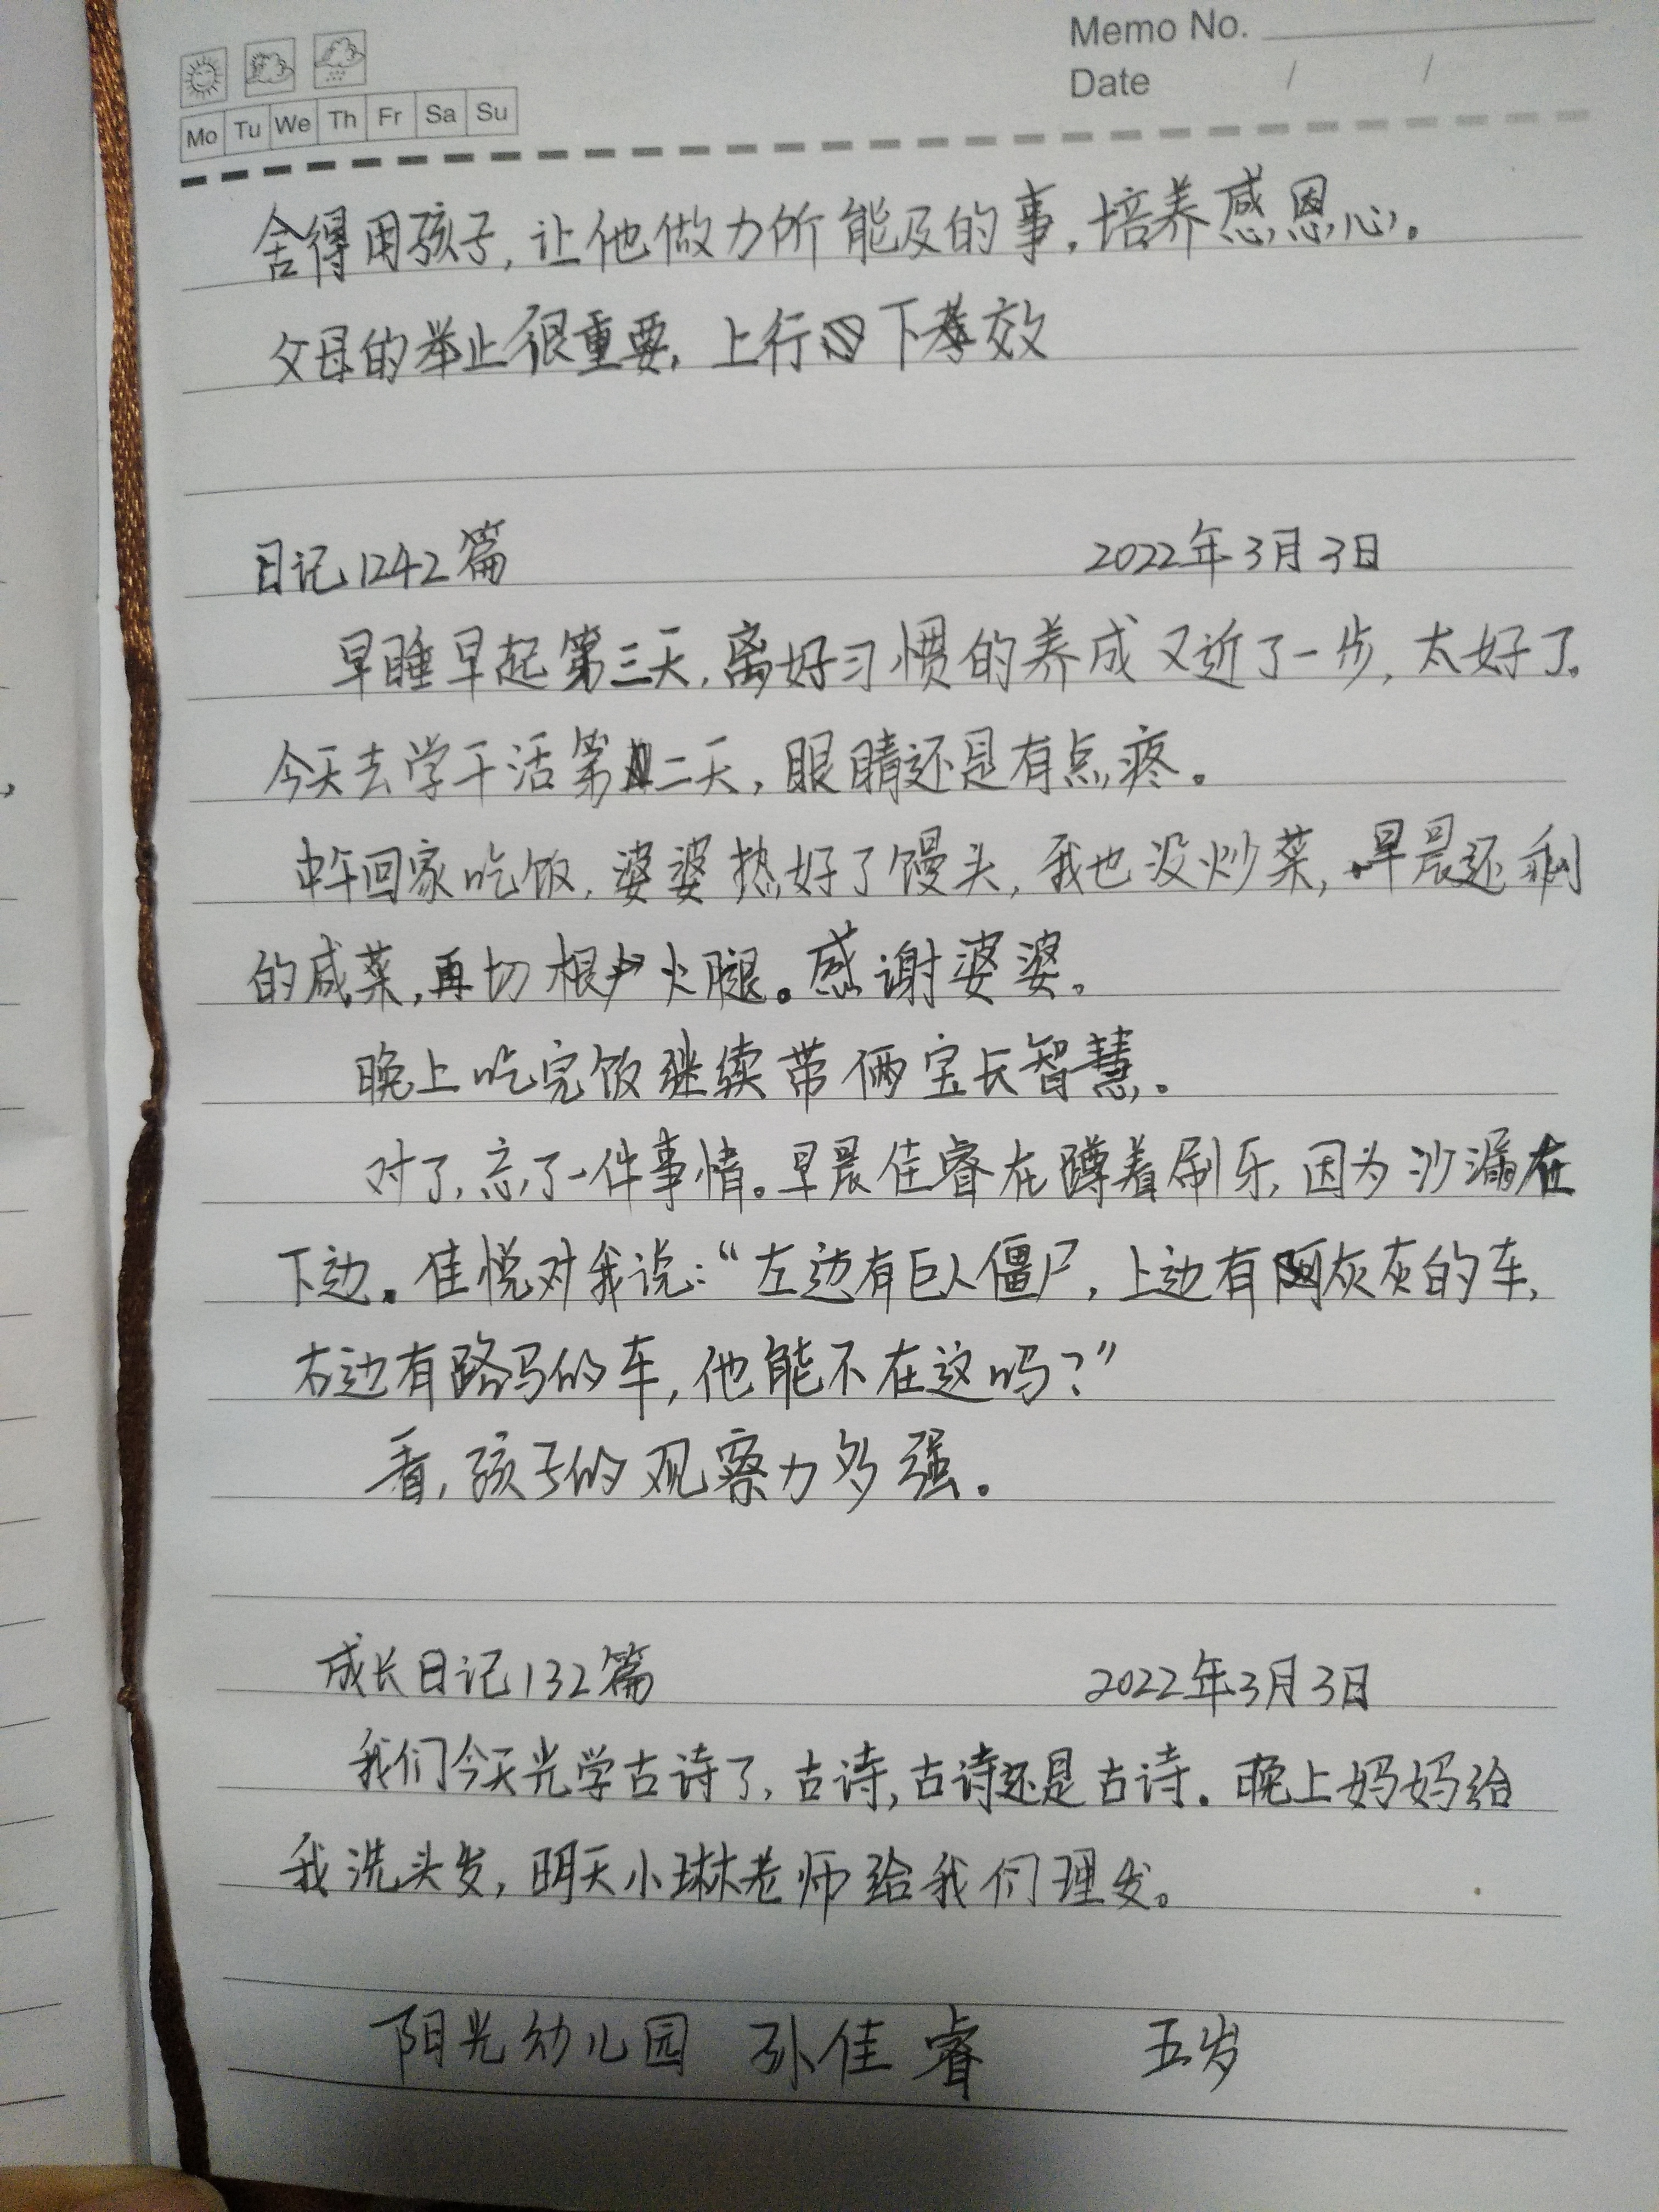 Memo No.
Date / /
Mo Tu We Th Fr Sa Su
舍得用孩子，让他做力所能及的事。培养感恩心。
父母的举止很重要，上行下孝效
日记1242篇 2022年3月3日
早睡早起第三天，离好习惯的养成又近了一步，太好了。
今天去学干活第二天，眼睛还是有点疼。
中午回家吃饭，婆婆热好了馒头，我也没炒菜，早晨还剩
的咸菜，再切根火腿。感谢婆婆。
晚上吃完饭继续带俩宝长智慧。
对了，忘了一件事情。早晨佳睿在蹲着刷牙，因为沙漏在
下边。佳悦对我说：“左边有巨人僵尸，上边有灰灰的车，
右边有路马的车，他能不在这吗？”
看，孩子的观察力多强。
成长日记132篇 2022年3月3日
我们今天光学古诗了，古诗，古诗还是古诗。晚上妈妈给
我洗头发，明天小琳老师给我们理发。
阳光幼儿园 孙佳睿 五岁